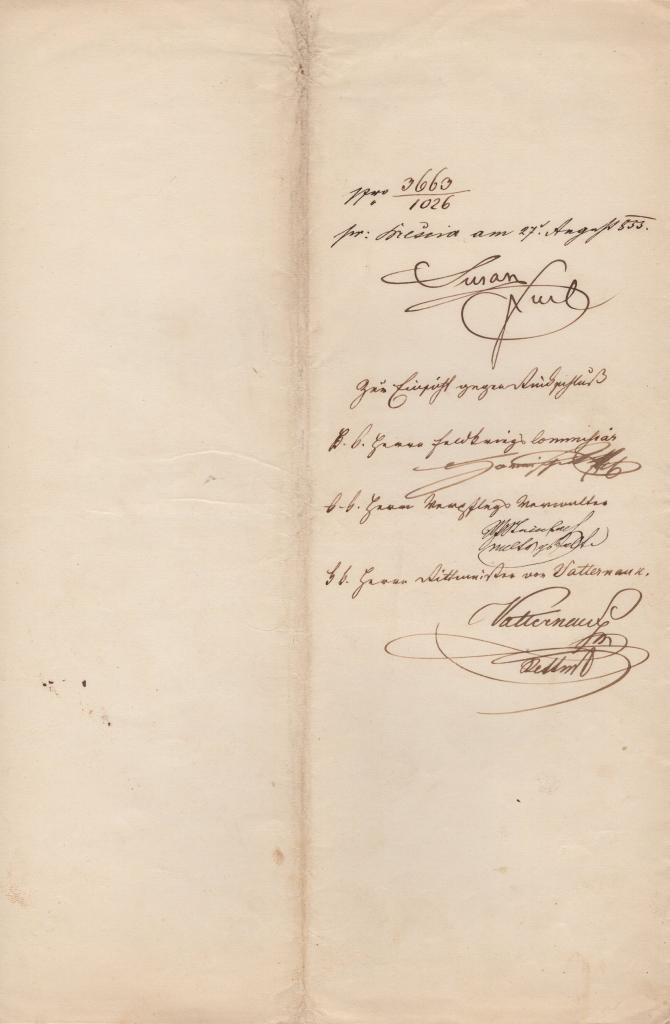 Nro 3663/1026
pr: Brescia am 27t. August 853.
Susan
Zur Einsicht gegen Rückschluß
k. k. Herrn Feldkriegs Commissär
k. k. Herrn Verpflegs Verwalter
k. k. Herrn Rittmeister von Vatternaux.
Vatternaux
Rittm